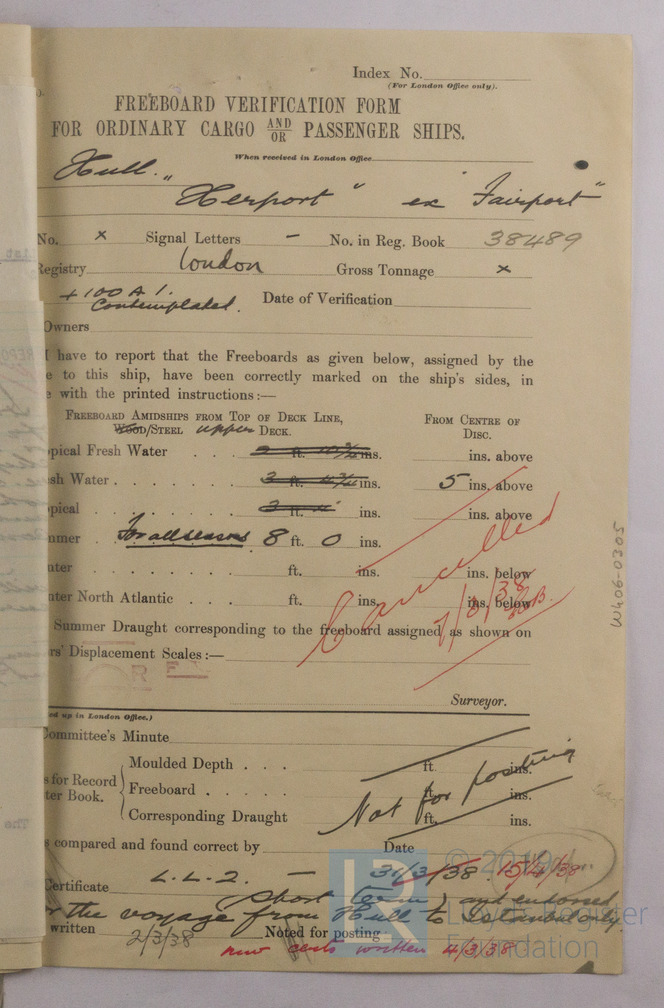 Index No.
(For London Office only).
FREEBOARD VERIFICATION FORM
FOR ORDINARY CARGO AND/OR PASSENGER SHIPS.
When received in London Office
Hull.
"Herport" ex "Fairport"
No. x Signal Letters - No. in Reg. Book 38489
Registry London Gross Tonnage x
+100 A 1.
Contemplated. Date of Verification
Owners
I have to report that the Freeboards as given below, assigned by the
e to this ship, have been correctly marked on the ship's sides, in
e with the printed instructions:—
FREEBOARD AMIDSHIPS FROM TOP OF DECK LINE, FROM CENTRE OF
WOOD/STEEL upper DECK. DISC.
opical Fresh Water . . . ft. ins. ins. above
sh Water . . . . . . 3 ft. ins. 5 ins. above
opical . . . . . . . 3 ft. ins. ins. above
mmer For all seasons 8 ft. 0 ins.
nter . . . . . . . ft. ins. ins. below
nter North Atlantic . . . ft. ins. ins. below
Cancelled
7/3/38
Summer Draught corresponding to the freeboard assigned as shown on
rs' Displacement Scales:—
Surveyor.
ed up in London Office.)
Committee's Minute
Moulded Depth . . . . ft. ins.
s for Record
ter Book.
Freeboard . . . . . ft. ins.
Corresponding Draught ft. ins.
Not for posting
s compared and found correct by Date
Certificate L.L.2. - 31/3/38 15/4/38
(short term) and endorsed
or the voyage from Hull to Istanbul only.
written 2/3/38 Noted for posting
new certs written 4/3/38
W406-0305
© 2019
Lloyd's Register
Foundation
LR